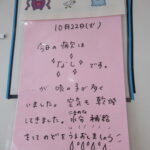 10月22日(火)
今日の病欠は
なしです。
が 咳の子が多く
いました。空気も乾燥
してきました。水分補給
をしてのどをうるおしましょう